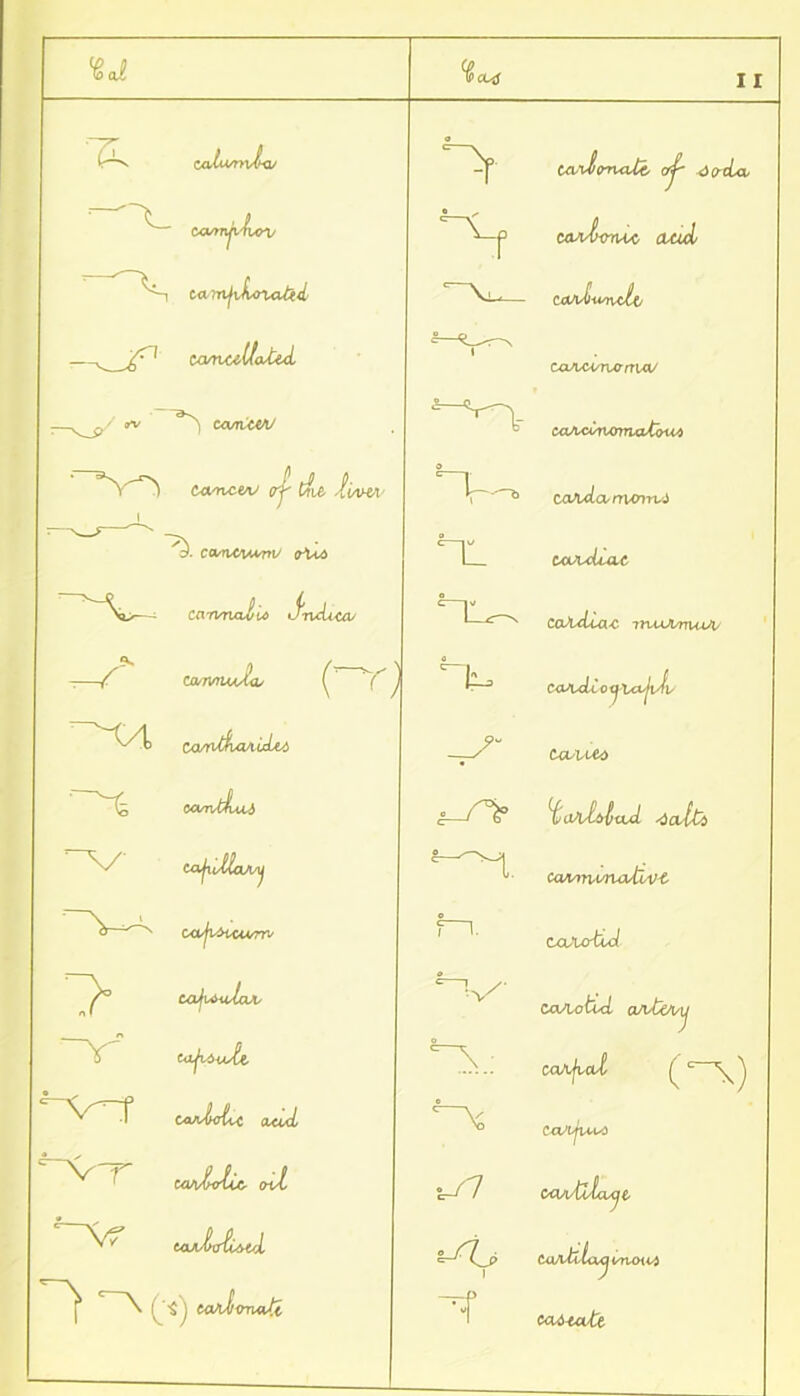 Cal
calumba
camphor
camphorated
cancellated
or cancer
cancer of the liver
cancrum oris
cannabis Indica
cannula
cantharides
canthus
capillary
capsicum
capsular
capsule
carbolic acid
carbolic oil
carbolised
carbonate
Cas 11
carbonate of soda
carbonic acid
carbuncle
carcinoma
carcinomatous
cardamoms
cardiac
cardiac murmur
cardiograph
caries
Carlsbad salts
carminative
carotid
carotid artery
carpal
carpus
cartilage
cartilaginous
caseate